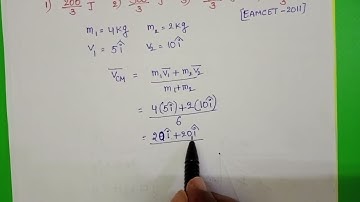 1) 200/3 J 2) /3 3) /3
[EAMCET-2011]
m₁ = 4kg m₂ = 2kg
V₁ = 5î V₂ = 10î
V̅CM = (m₁V̅₁ + m₂V̅₂)/(m₁+m₂)
= (4(5î)+2(10î))/6
= 20î+20î